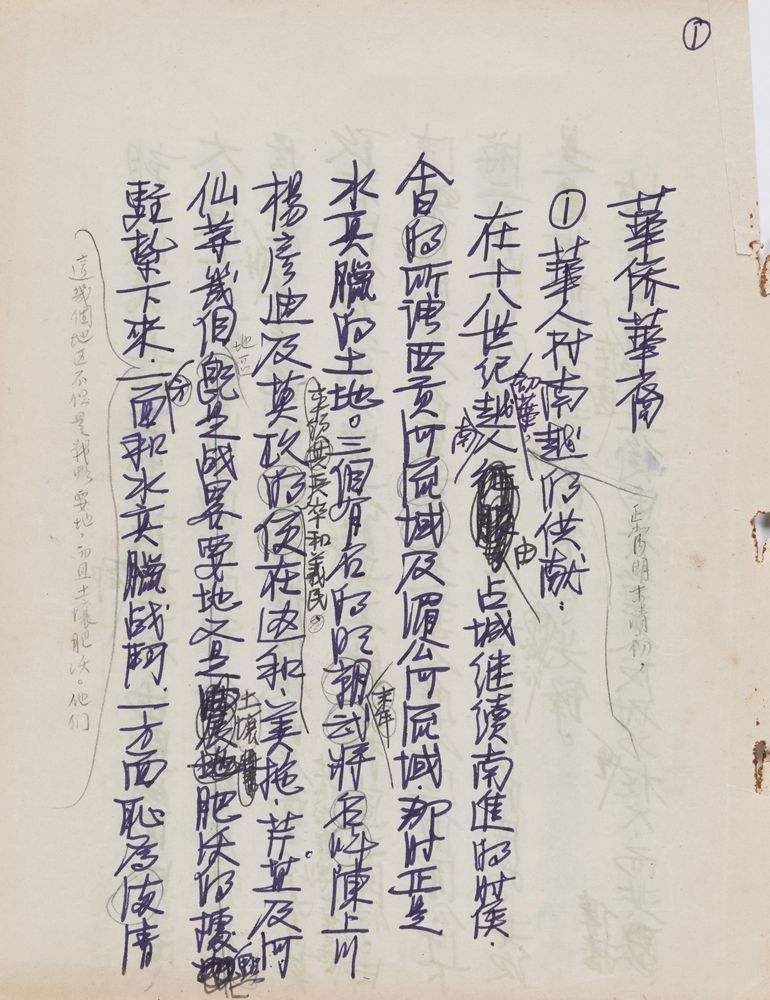 ①
華僑華裔
①華人对南越的供献：
在十八世紀越南人由占城继續南進的时候.
會的所谓西贡河流域及湄公河流域.那时正是
水真臘的土地。三個有名的明朝末年武将名叫陳上川
楊彦迪及莫玖的便在边和.美拖.芹苴及河
仙等幾個既是战畧要地又是土壤肥沃的
駐紮下來.一方面和水真臘战鬥.一方面恥為
正當明末清初，
率領其兵卒和義民。
地區
這幾個地区不但是戰略要地，而且土壤肥沃。他们